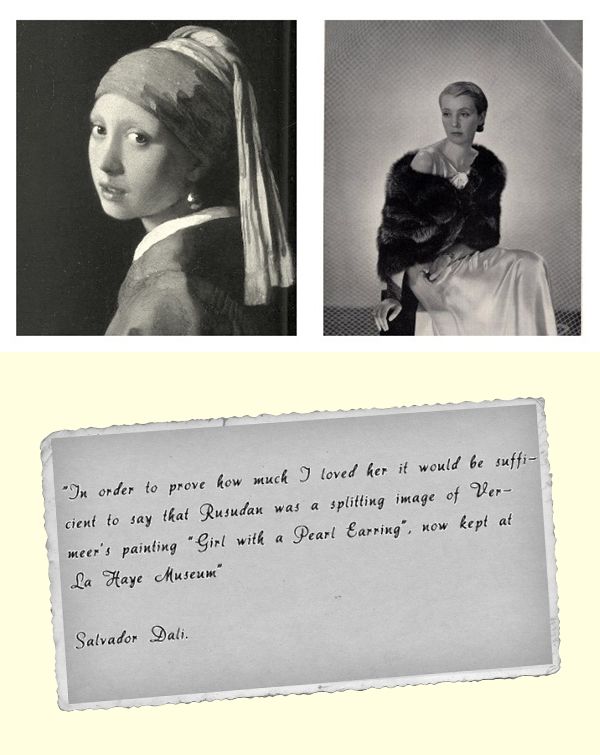 "In order to prove how much I loved her it would be suffi-
cient to say that Rusudan was a splitting image of Ver-
meer's painting "Girl with a Pearl Earring", now kept at
La Haye Museum"
Salvador Dali.